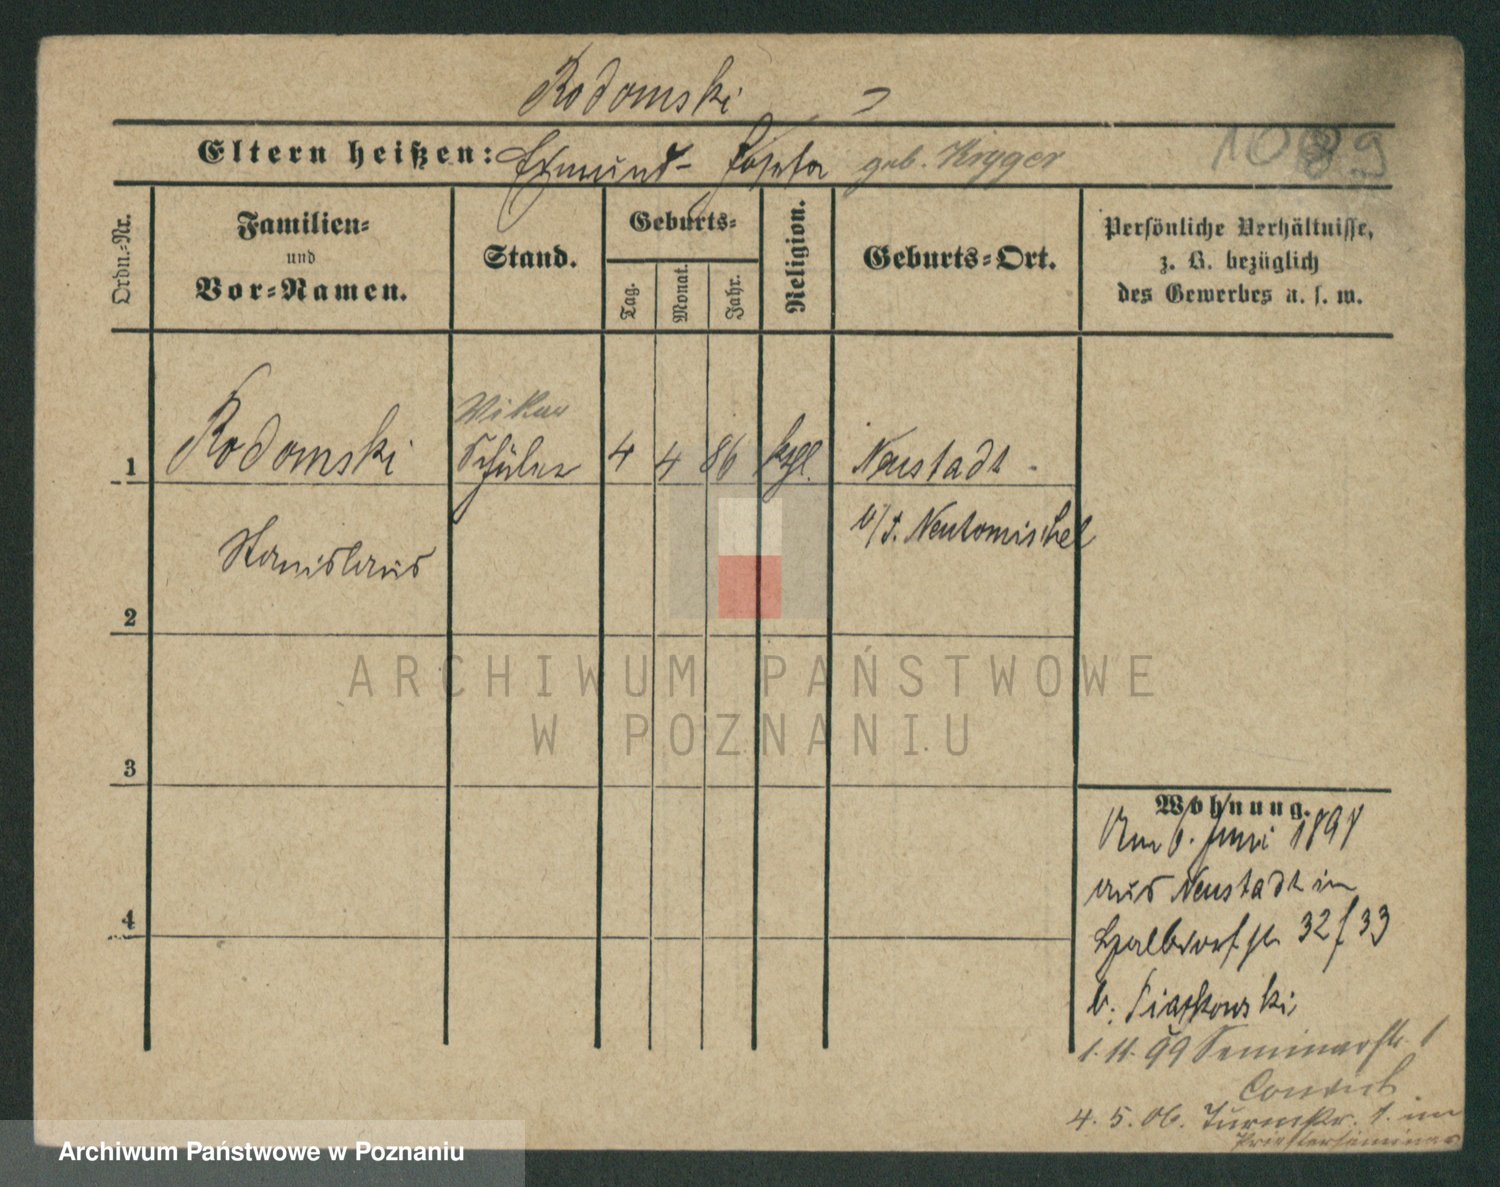 Rodomski
Eltern heißen: Edmund - Josefa geb. Krygger
1089
Ordn.-Nr.
Familien-
und
Vor-Namen.
Stand.
Geburts-
Tag.
Monat.
Jahr.
Religion.
Geburts-Ort.
Persönliche Verhältnisse,
z. B. bezüglich
des Gewerbes u. s. w.
1 Rodomski Vikar
Schüler 4 4 86 ktl. Neustadt
b/P. Neutomischel
Stanislaus
2
3
4
Wohnung.
Am 6. Juni 1898
aus Neustadt in
Halbdorfstr 32/33
b. Piaskowski
1. 11. 99 Seminarstr. 1
Convict
4. 5. 06. Turmstr. 1. im
Priesterseminar
ARCHIWUM PAŃSTWOWE
W POZNANIU
Archiwum Państwowe w Poznaniu